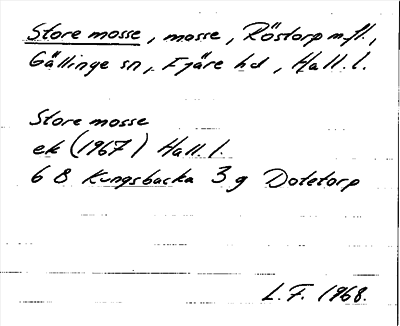 Store mosse, mosse, Röstorp m.fl.,
Gällinge sn, Fjäre hd, Hall. l.
Store mosse
ek (1967) Hall. l.
6 B Kungsbacka 3 g Dotetorp
L.F. 1968.